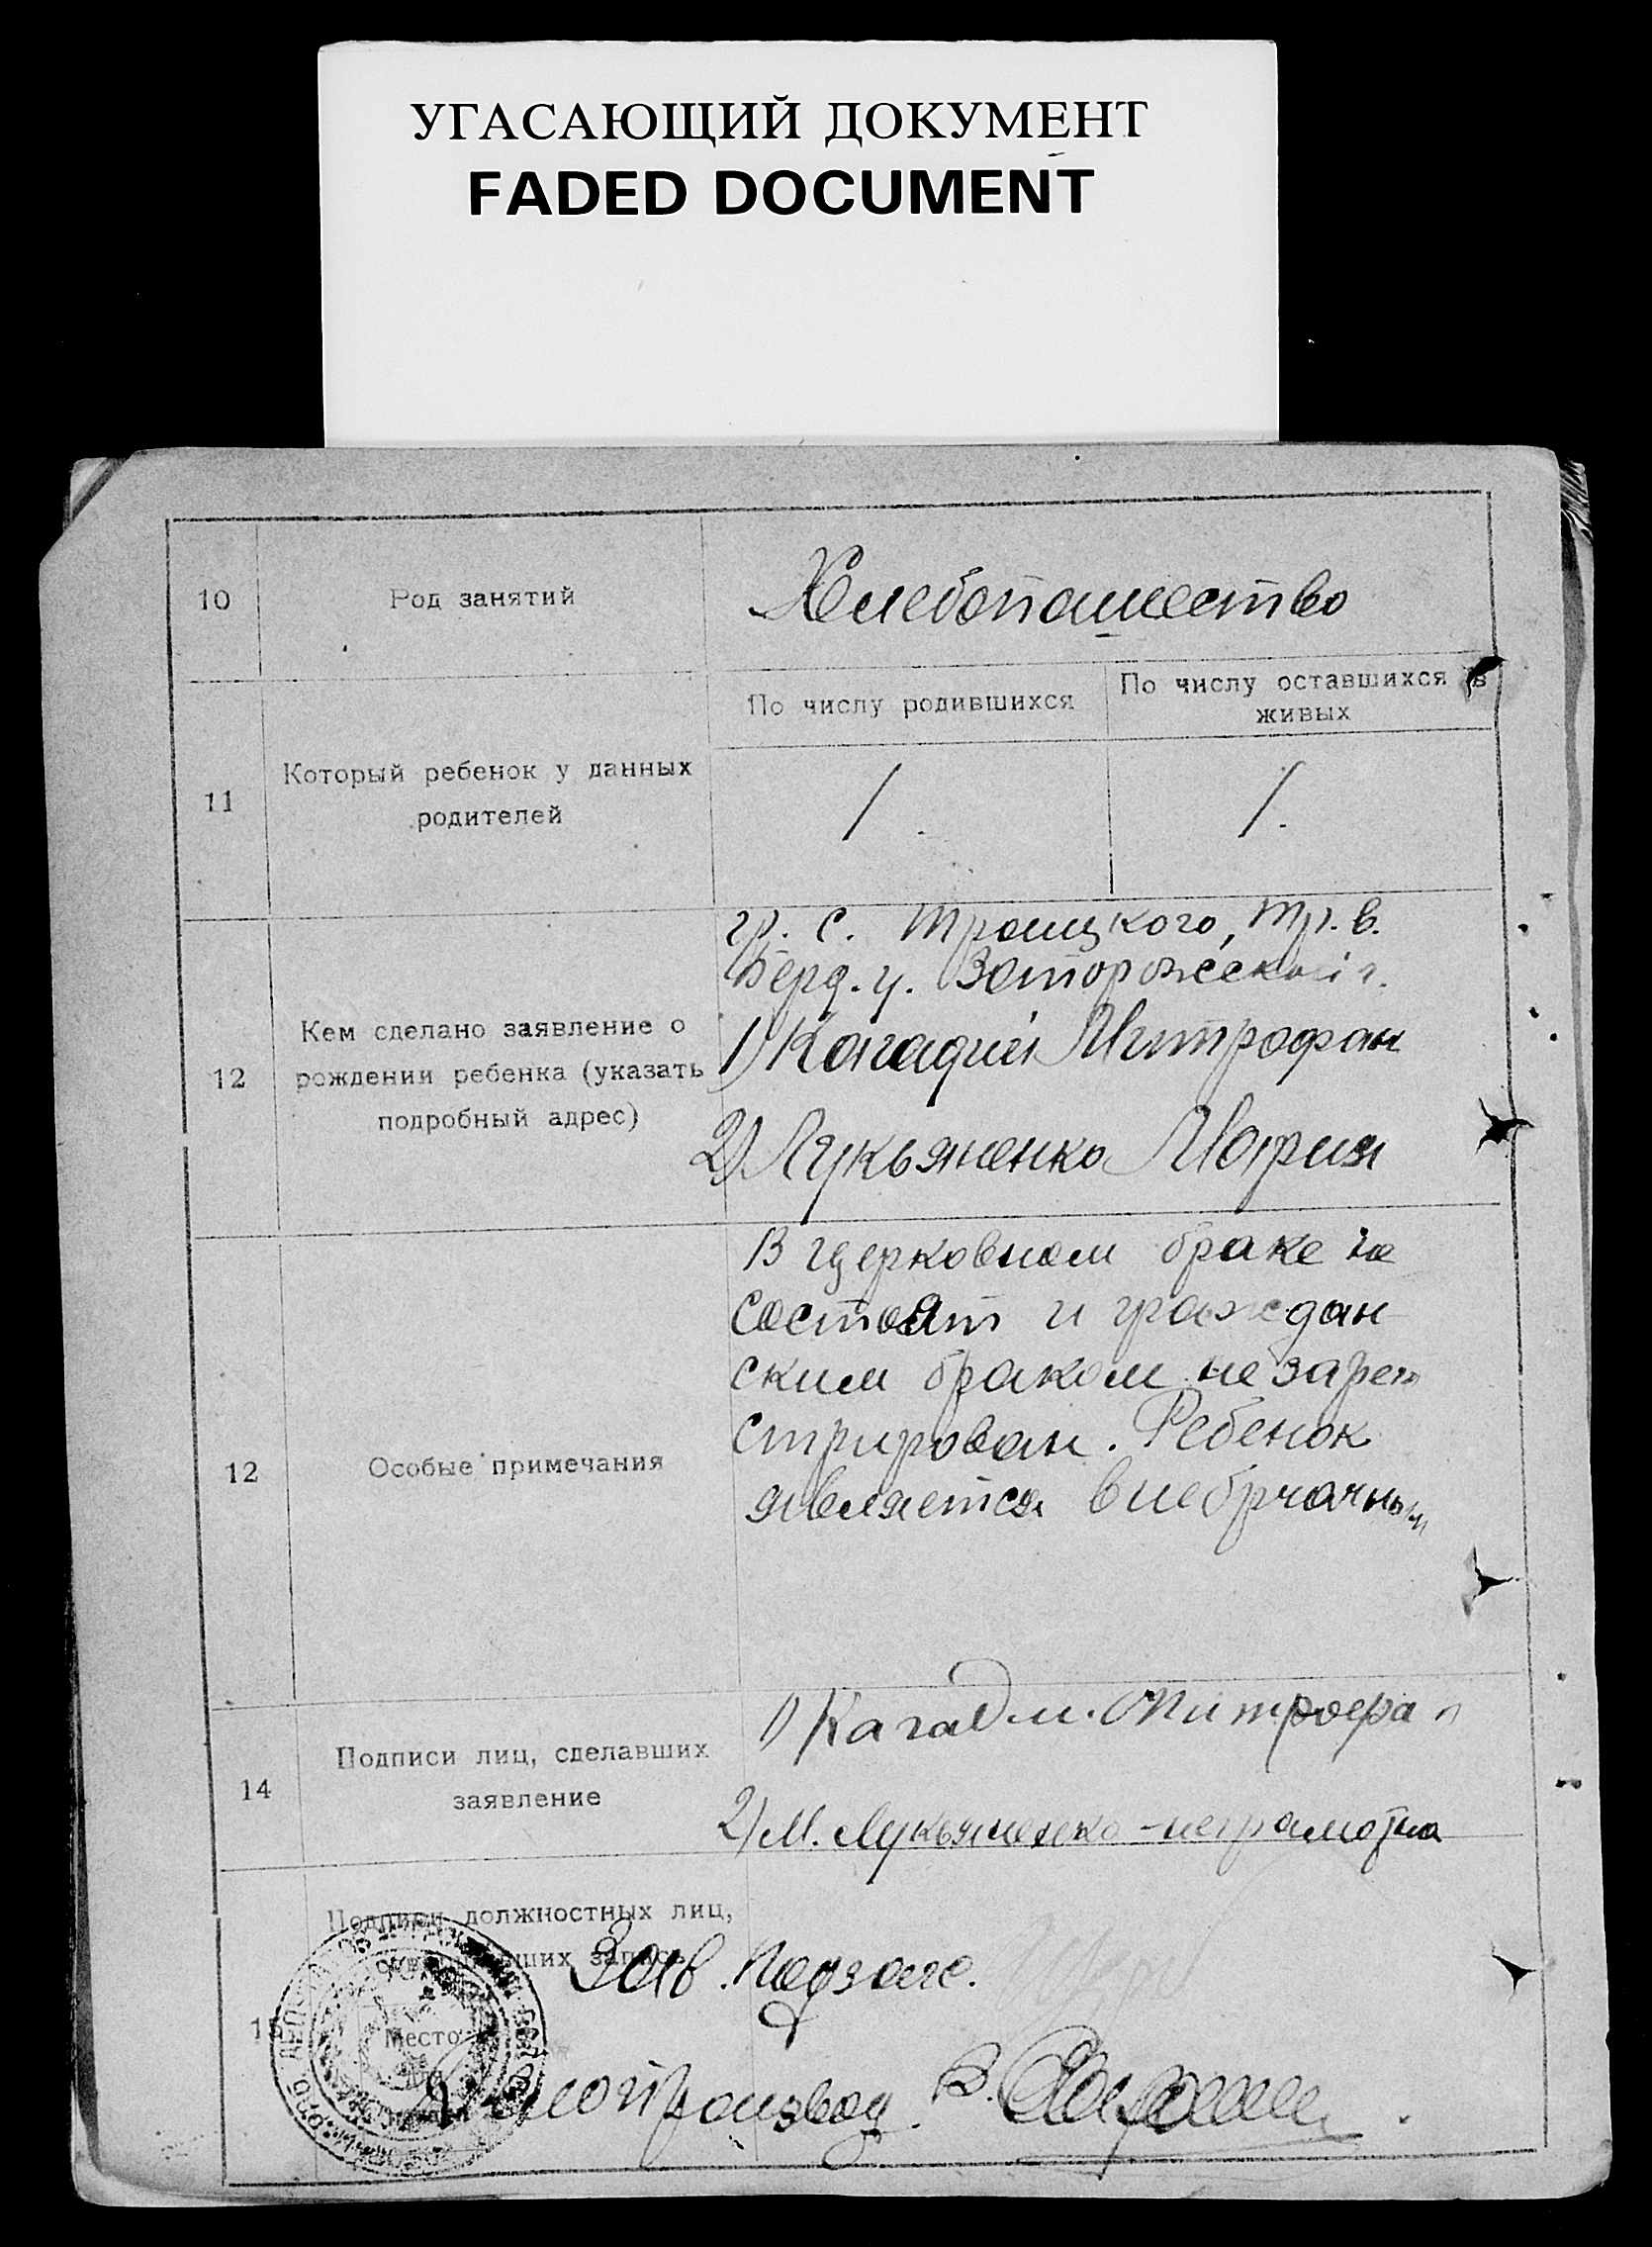 УГАСАЮЩИЙ ДОКУМЕНТ
FADED DOCUMENT
10
Род занятий
Хлебопашество
11
Который ребенок у данных
родителей
По числу родившихся
По числу оставшихся в
живых
1.
1.
12
Кем сделано заявление о
рождении ребенка (указать
подробный адрес)
гр. с. Троицкого, Тр. в.
Берд. у. Запорожской г.
1) Кагадий Митрофан
2) Лукьяненко Мария
12
Особые примечания
В церковном браке не
состоят и граждан
ским браком не зареги
стрирован. Ребенок
является внебрачным
14
Подписи лиц, сделавших
заявление
1) Кагадий Митрофан
2) М. Лукьяненко - неграмотна
15
Подписи должностных лиц,
запись
Место
Зав. Подзагс.
Делопроизвод. В.